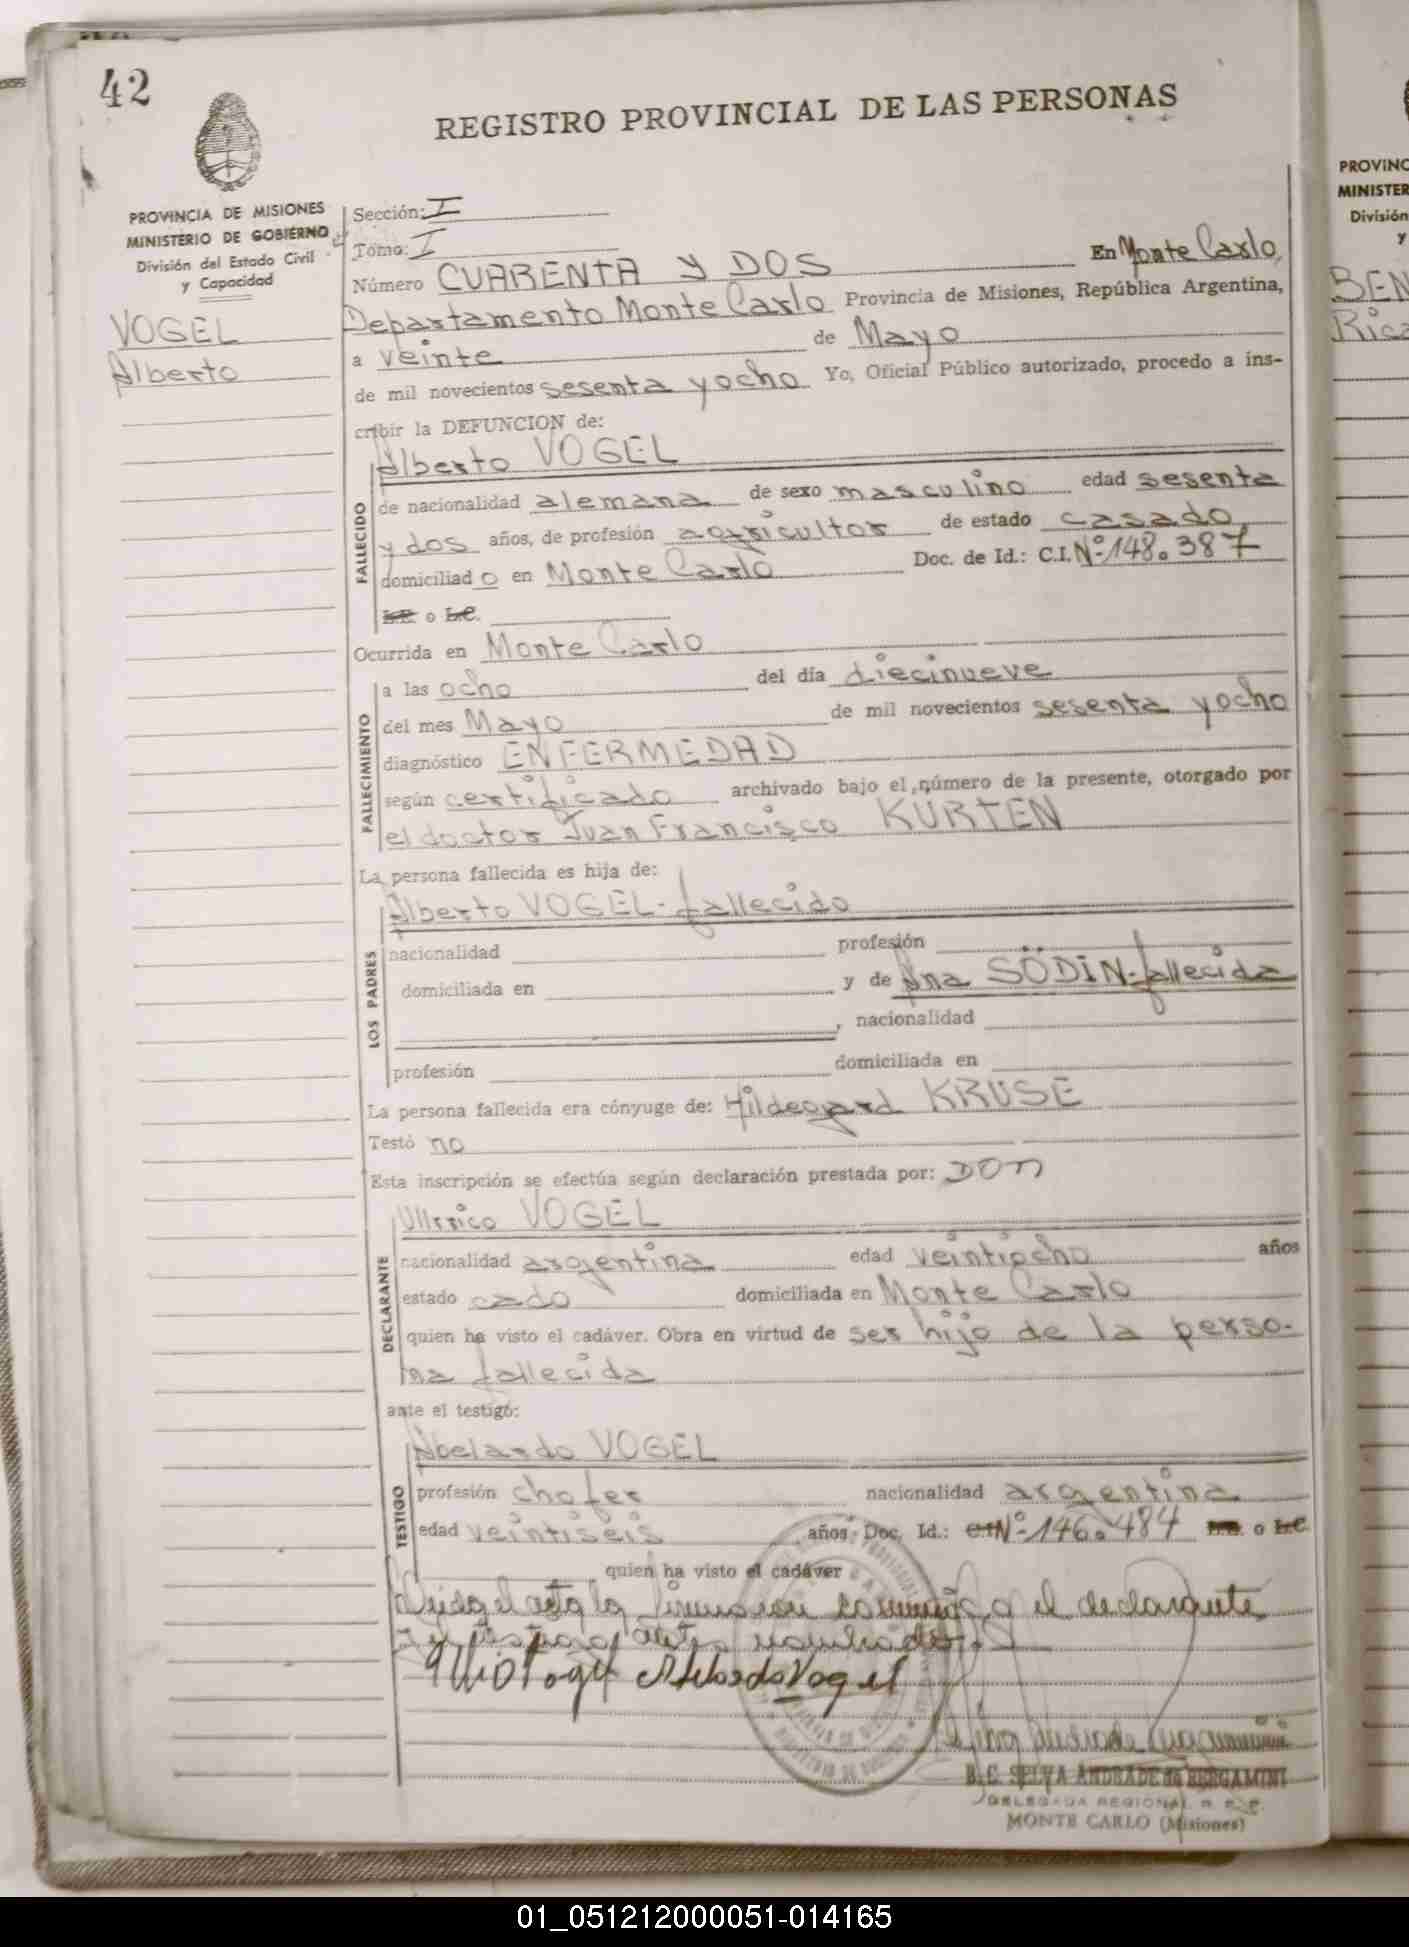 42
REGISTRO PROVINCIAL DE LAS PERSONAS
PROVINCIA DE MISIONES
MINISTERIO DE GOBIERNO
División del Estado Civil
y Capacidad
VOGEL
Alberto
Sección: I
Tomo: I
Número CUARENTA y DOS En Monte Carlo,
Departamento Monte Carlo Provincia de Misiones, República Argentina,
a veinte de Mayo
de mil novecientos sesenta y ocho Yo, Oficial Público autorizado, procedo a ins-
cribir la DEFUNCION de:
Alberto VOGEL
FALLECIDO
de nacionalidad alemana de sexo masculino edad sesenta
y dos años, de profesión agricultor de estado casado,
domiciliado en Monte Carlo Doc. de Id.: C.I. Nº 148.387
L.E. o L.C.
Ocurrida en Monte Carlo
FALLECIMIENTO
a las ocho del día diecinueve
del mes Mayo de mil novecientos sesenta y ocho
diagnóstico ENFERMEDAD
según certificado archivado bajo el número de la presente, otorgado por
el doctor Juan Francisco KURTEN
La persona fallecida es hija de:
Alberto VOGEL - fallecido
LOS PADRES
nacionalidad profesión
domiciliada en y de Ana SÖDIN - fallecida
, nacionalidad
profesión domiciliada en
La persona fallecida era cónyuge de: Hildegard KRUSE
Testó no
Esta inscripción se efectúa según declaración prestada por: DON
Ullrico VOGEL
DECLARANTE
nacionalidad argentina edad veintiocho años
estado cado domiciliada en Monte Carlo
quien ha visto el cadáver. Obra en virtud de ser hijo de la perso-
na fallecida
ante el testigo:
Abelardo VOGEL
TESTIGO
profesión chofer nacionalidad argentina
edad veintiseis años Doc. Id.: C.I. Nº 146.484 L.E. o L.C.
quien ha visto el cadáver
el acta la conmigo el declarante
y testigo antes nombrados.
Vogel Abelardo Vogel
B. C. SELVA ANDRADE de BERGAMINI
DELEGADA REGIONAL R. P. P.
MONTE CARLO (Misiones)
PROVINC
MINISTER
División
y
BEN
Rica
01_051212000051-014165